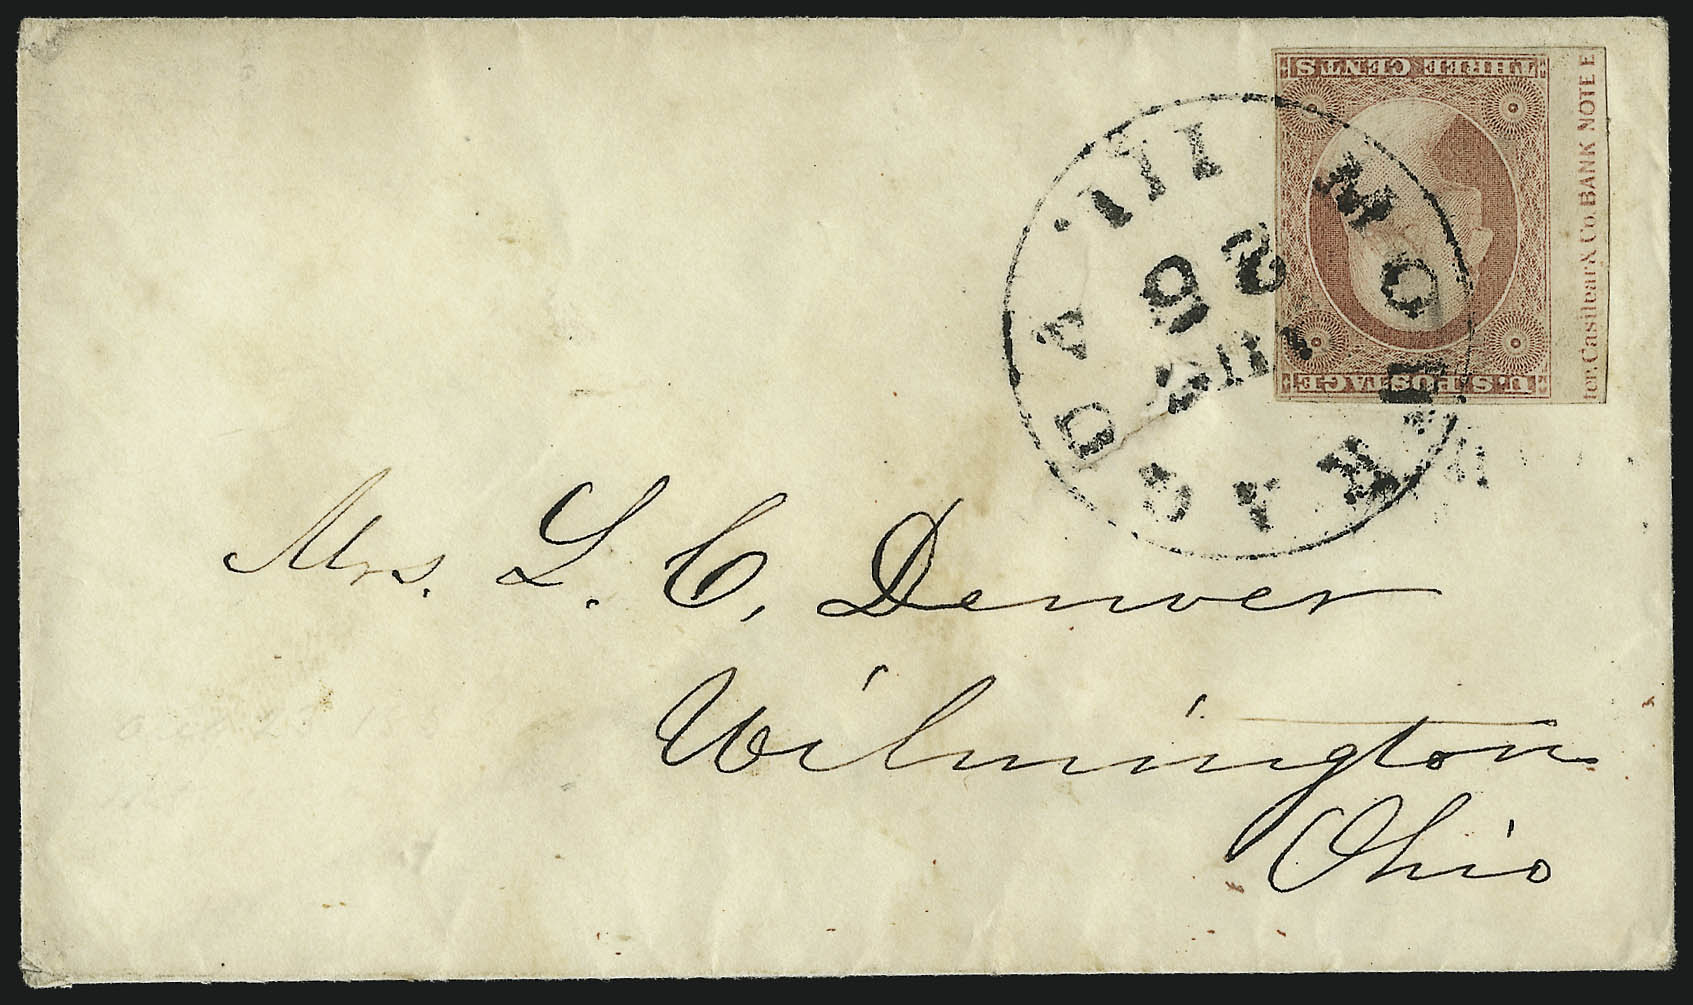 THREE CENTS
U.S. POSTAGE
ter, Casilear & Co. BANK NOTE E
ILL.
AUG
25
Mrs. L. C. Denver
Wilmington
Ohio